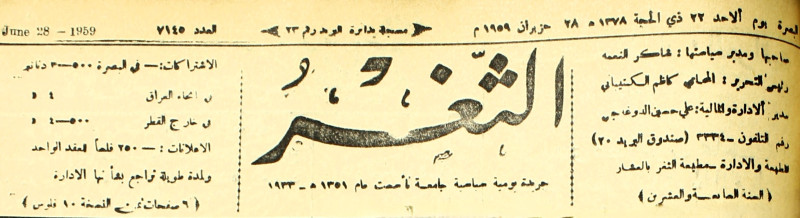 البصرة يوم الاحد ٢٢ ذي الحجة ١٣٧٨ ه ٢٨ حزيران ١٩٥٩ م
مسجلة بدائرة البريد رقم ٢٣
العدد ٧١٤٥
June 28 - 1959
صاحبها ومدير سياستها : شاكر النعمه
رئيس التحرير : المحامي كاظم الكتيباني
مدير الادارة والمالية : علي حسين الدوغجي
رقم التلفون - ٣٣٣٤ (صندوق البريد ٢٠)
المطبعة والادارة - مطبعة الثغر بالعشار
( السنة السادسة والعشرين )
الثغر
جريدة يومية سياسية جامعة تأسست عام ١٣٥١ ه - ١٩٣٣
الاشتراكات :— في البصرة ٥٠٠—٣ دنانير
في انحاء العراق ٤ »
في خارج القطر ٥٠٠—٤ »
الاعلانات :— ٢٥٠ فلساً للعقد الواحد
ولمدة طويلة تراجع بشأنها الادارة
( ٦ صفحات ثمن النسخة ١٠ فلوس )